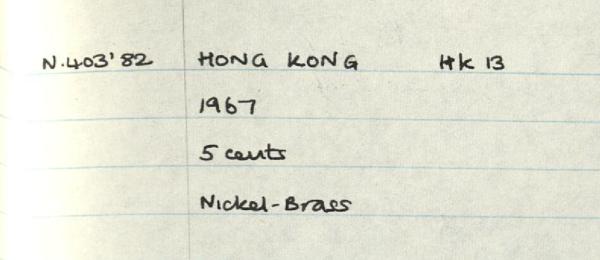 N.403'82 HONG KONG HK 13
1967
5 cents
Nickel-Brass